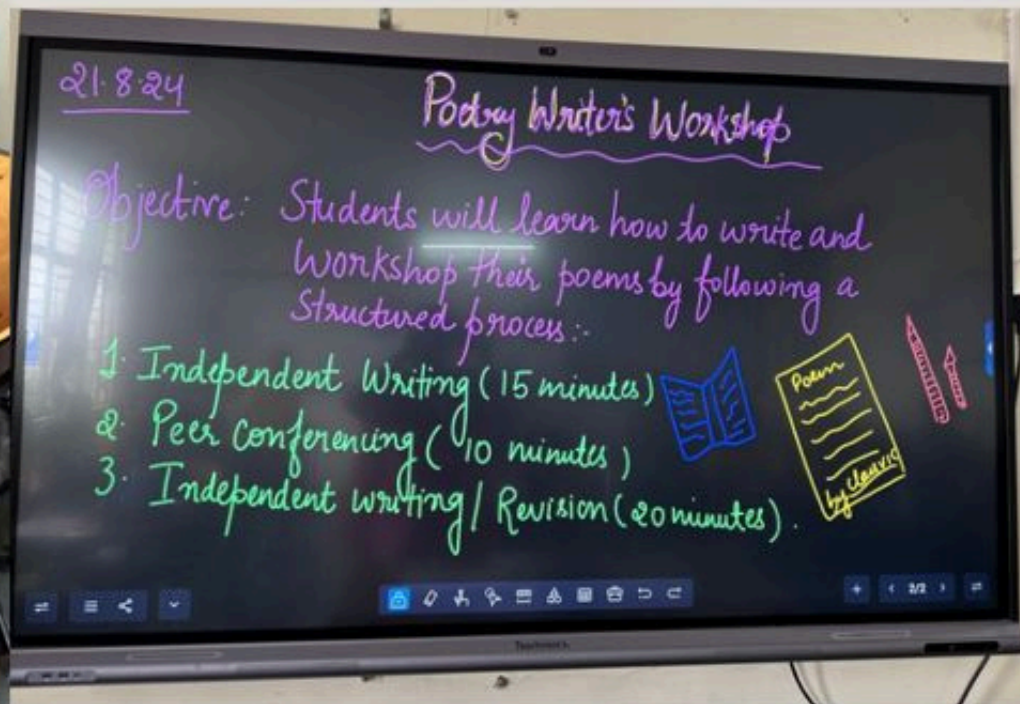 21.8.24
Poetry Writer's Workshop
Objective: Students will learn how to write and
Workshop their poems by following a
Structured process:-
1. Independent Writing (15 minutes)
2. Peer conferencing (10 minutes)
3. Independent writing / Revision (20 minutes).
Poem
by
2/2